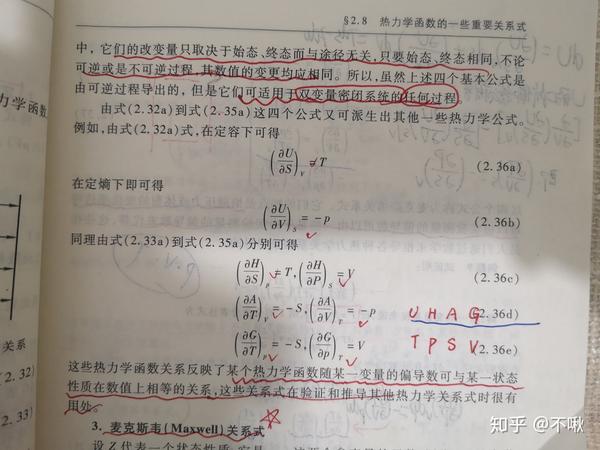 §2.8 热力学函数的一些重要关系式
中,它们的改变量只取决于始态、终态而与途径无关,只要始态、终态相同,不论
可逆或是不可逆过程,其数值的变更均应相同。所以,虽然上述四个基本公式是
由可逆过程导出的,但是它们可适用于双变量密闭系统的任何过程。
由式(2.32a)到式(2.35a)这四个公式又可派生出其他一些热力学公式。
例如,由式(2.32a)式,在定容下可得
(∂U/∂S)_V = T (2.36a)
在定熵下即可得
(∂U/∂V)_S = -p (2.36b)
同理由式(2.33a)到式(2.35a)分别可得
(∂H/∂S)_p = T, (∂H/∂P)_S = V (2.36c)
(∂A/∂T)_V = -S, (∂A/∂V)_T = -p (2.36d)
U H A G
(∂G/∂T)_p = -S, (∂G/∂p)_T = V (2.36e)
T P S V
这些热力学函数关系反映了某个热力学函数随某一变量的偏导数可与某一状态
性质在数值上相等的关系,这些关系式在验证和推导其他热力学关系式时很有
用处。
3. 麦克斯韦(Maxwell)关系式
力学函数
关系
2.32)
(2.33
知乎 @不啾